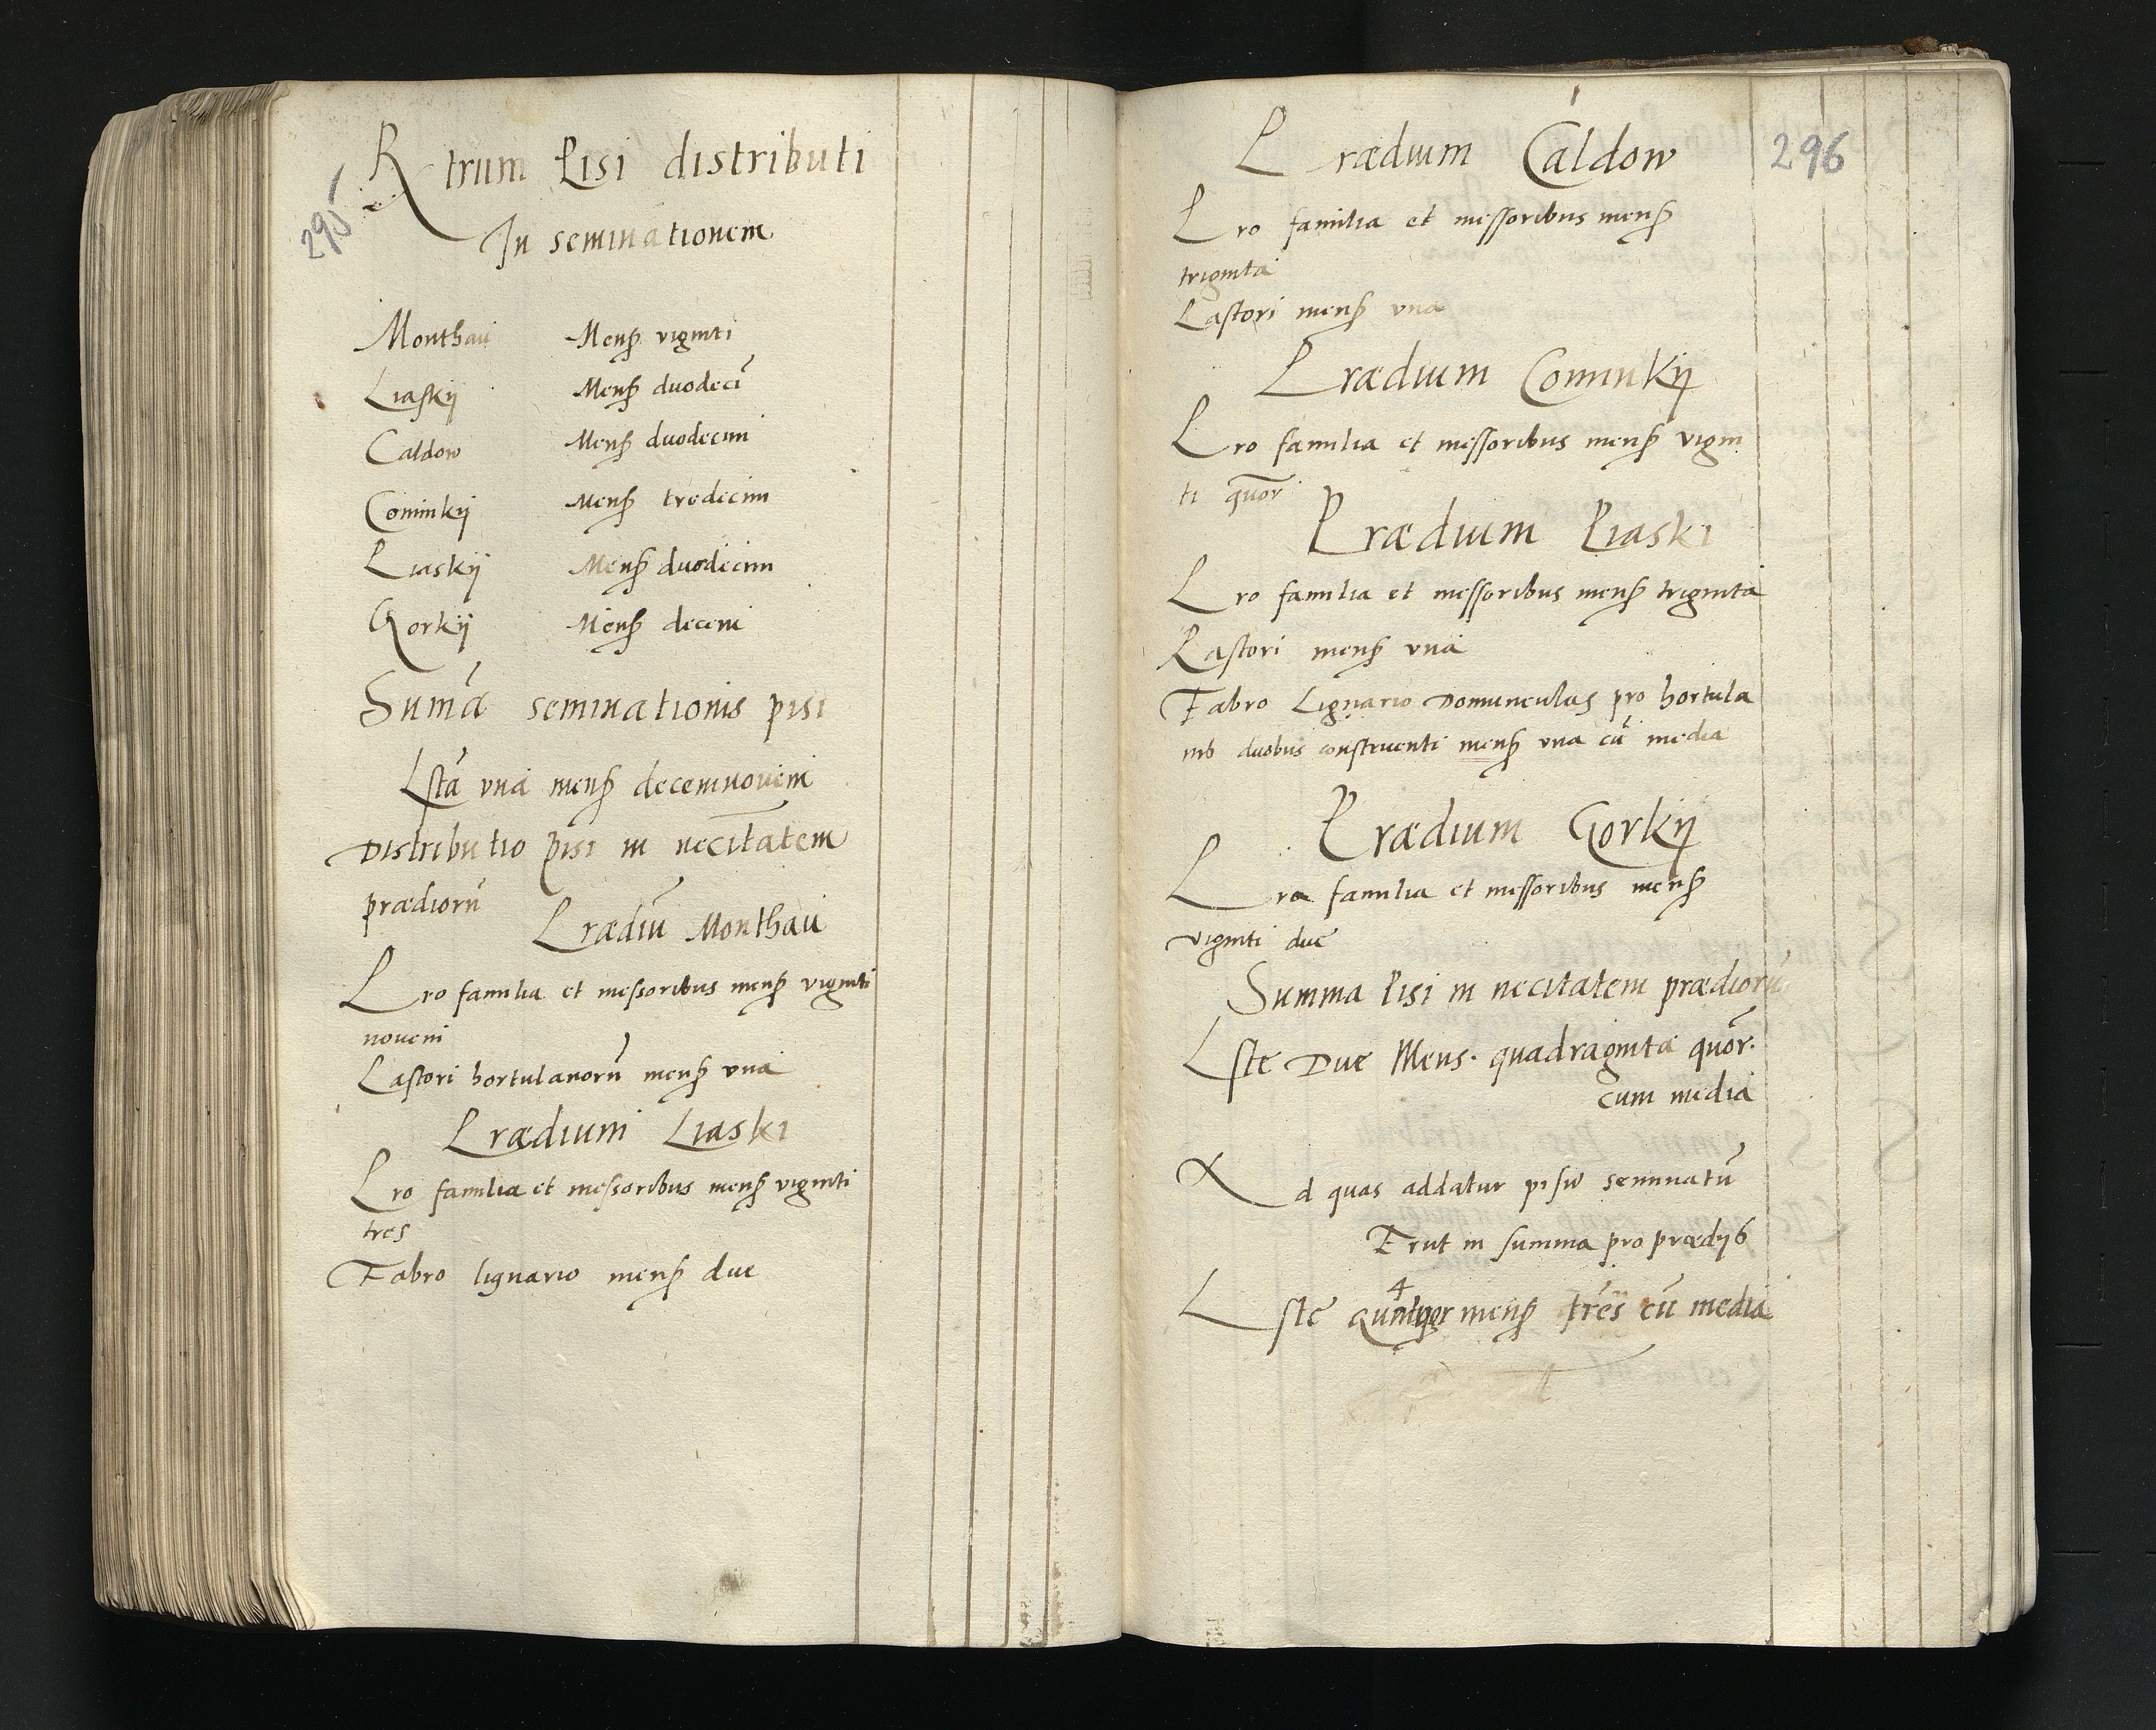 295
Rtrum Pisi distributi
In seminationem
Monthaii Mens viginti
Liaskij Mens duodecī
Caldow Mens duodecim
Cominkij Mens tredecim
Piaskij Mens duodecim
Gorkij Mens decem
Sumā seminationis pisi
Lstā una mens decemnovem
Distributio pisi in necītatem
prædiorū
Prædiū Monthaii
Pro familia et messoribus mens viginti
novem
Pastori hortulanorū mens una
Prædium Liaski
Pro familia et messoribus mens viginti
tres
Fabro lignario mens due
296
Prædium Caldow
Pro familia et messoribus mens
triginta
Pastori mens una
Prædium Cominkij
Pro familia et messoribus mens vigin
ti quor
Prædium Piaski
Pro familia et messoribus mens triginta
Pastori mens una
Fabro Lignario Domunculas pro hortula
nib duobus construenti mens una cū media
Prædium Gorkij
Pro familia et messoribus mens
viginti due
Summa Pisi in necitatem prædiorū
Lste Due Mens. quadraginta quor.
cum media
Ad quas addatur pisū seminatū
Erut in summa pro prædijb
4
Lste mens tres cū media